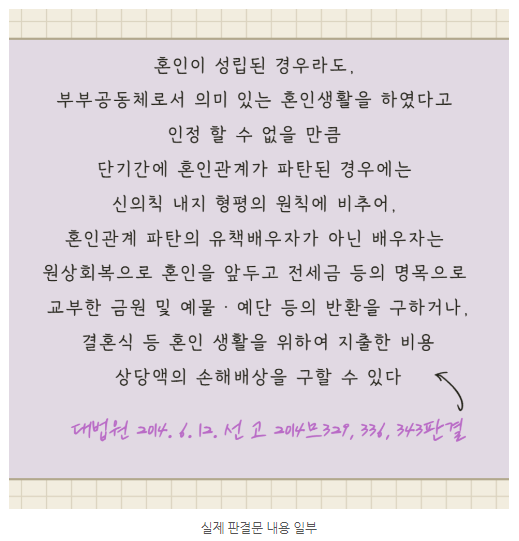 혼인이 성립된 경우라도,
부부공동체로서 의미 있는 혼인생활을 하였다고
인정 할 수 없을 만큼
단기간에 혼인관계가 파탄된 경우에는
신의칙 내지 형평의 원칙에 비추어,
혼인관계 파탄의 유책배우자가 아닌 배우자는
원상회복으로 혼인을 앞두고 전세금 등의 명목으로
교부한 금원 및 예물 · 예단 등의 반환을 구하거나,
결혼식 등 혼인 생활을 위하여 지출한 비용
상당액의 손해배상을 구할 수 있다
대법원 2014. 6. 12. 선고 2014므329, 336, 343판결
실제 판결문 내용 일부